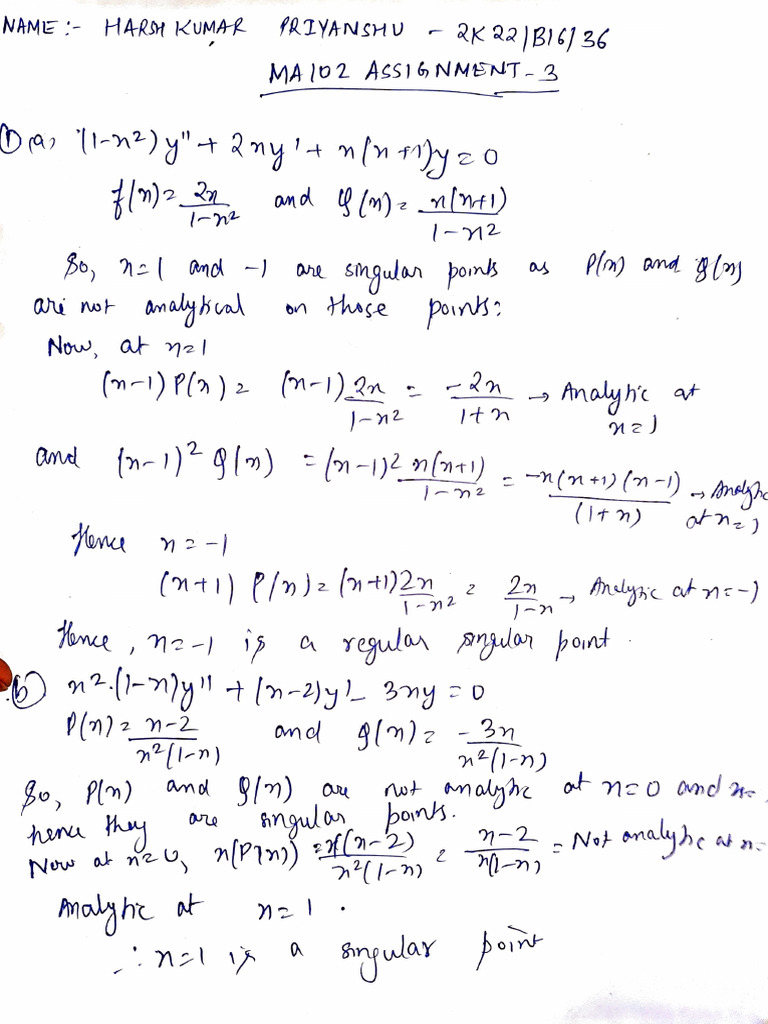 NAME :- HARSH KUMAR PRIYANSHU - 2K22/B16/36
MA102 ASSIGNMENT-3
① (a) (1-x²)y" + 2xy' + n(n+1)y = 0
P(x) = 2x/(1-x²) and Q(x) = n(n+1)/(1-x²)
So, x=1 and -1 are singular points as P(x) and Q(x)
are not analytical on those points:
Now, at x=1
(x-1) P(x) = (x-1) 2x/(1-x²) = -2x/(1+x) → Analytic at x=1
and (x-1)² Q(x) = (x-1)² n(n+1)/(1-x²) = -n(n+1)(x-1)/(1+x) → Analytic at x=1
Hence x = -1
(x+1) P(x) = (x+1)2x/(1-x²) = 2x/(1-x) → Analytic at x=-1
Hence, x=-1 is a regular singular point.
(b) x².(1-x)y'' + (x-2)y' - 3xy = 0
P(x) = x-2/(x²(1-x)) and Q(x) = -3x/(x²(1-x))
So, P(x) and Q(x) are not analytic at x=0 and x=
hence they are singular points.
Now at x=0, x(P(x)) = x(x-2)/(x²(1-x)) = x-2/(x(1-x)) = Not analytic at x=
Analytic at x=1.
∴ x=1 is a singular point